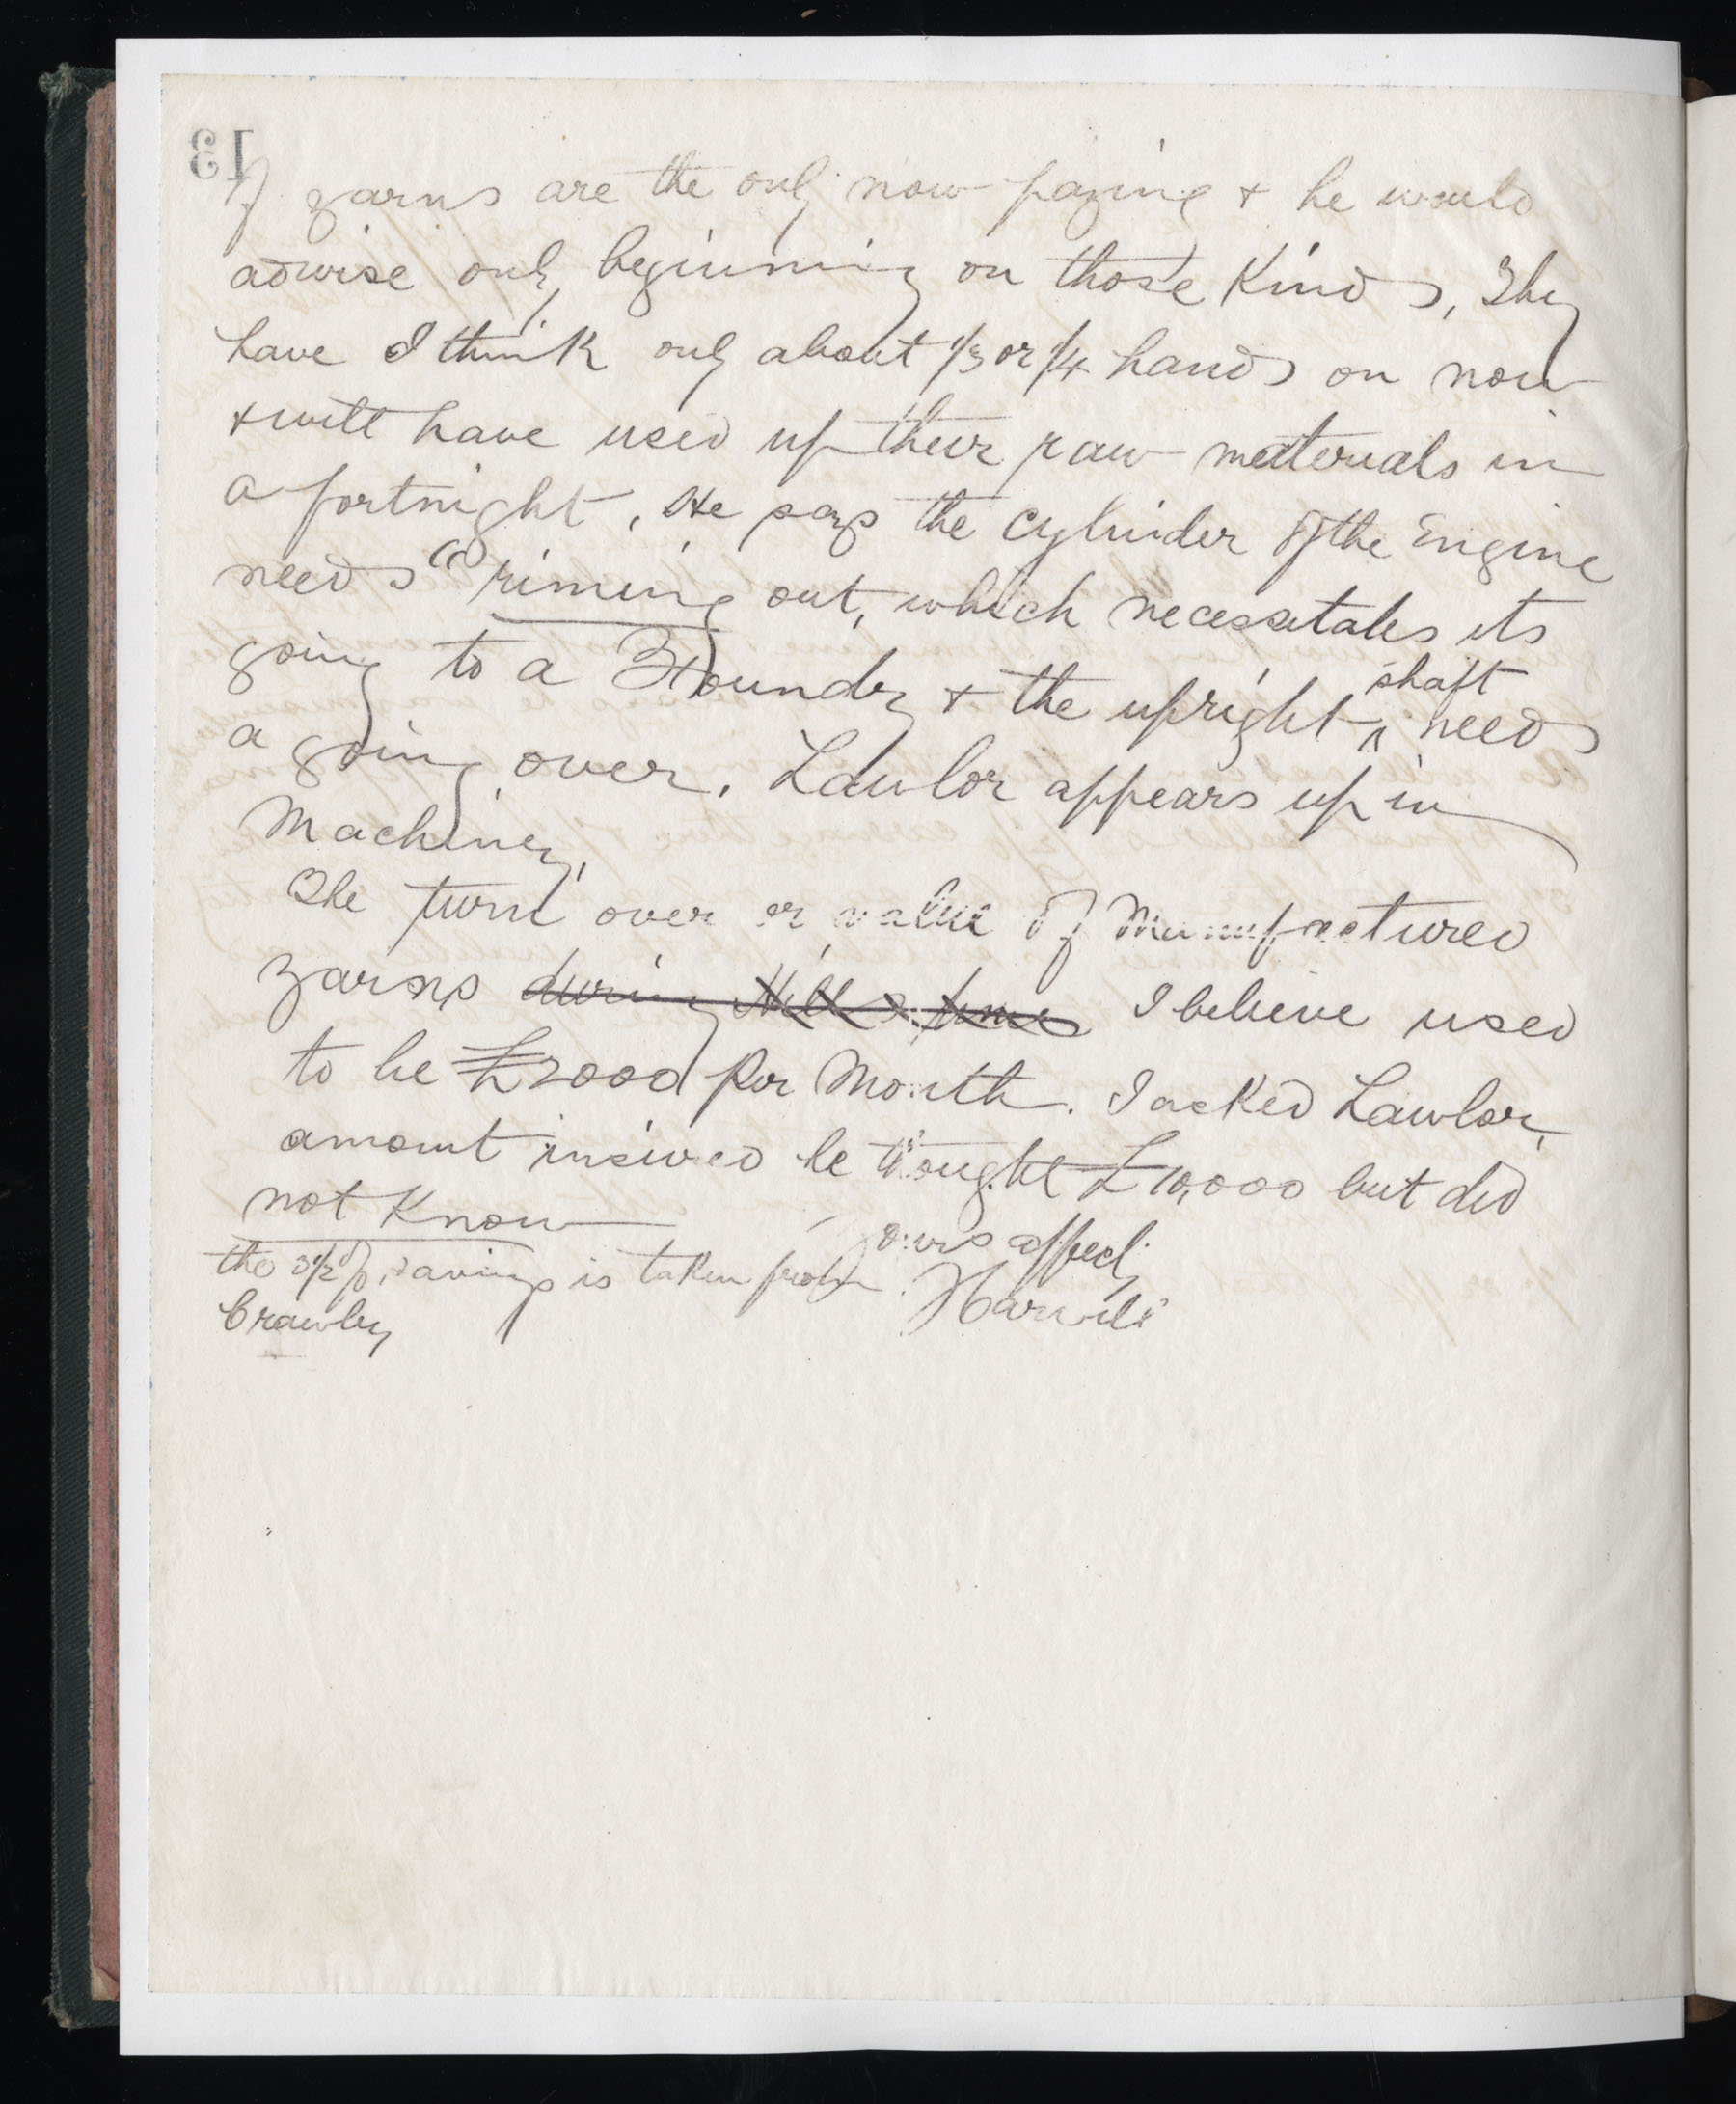 13
of yarns are the only now paying + he would
advise only beginning on those Kinds, They
have I think only about 1/3 or 1/4 hands on now
+ will have used up their raw materials in
a fortnight, He says the cylinder of the Engine
needs riming out, which necessitates its
going to a Foundry + the upright shaft needs
a going over. Lawlor appears up in
Machinery,
The turn over or value of Manufactured
yarns during Hill's time I believe used
to be £2000 per Month. I asked Lawlor,
amount insured he thought £10,000 but did
not Know
yours affecly
the 3 1/2 savings is taken from
Crawley